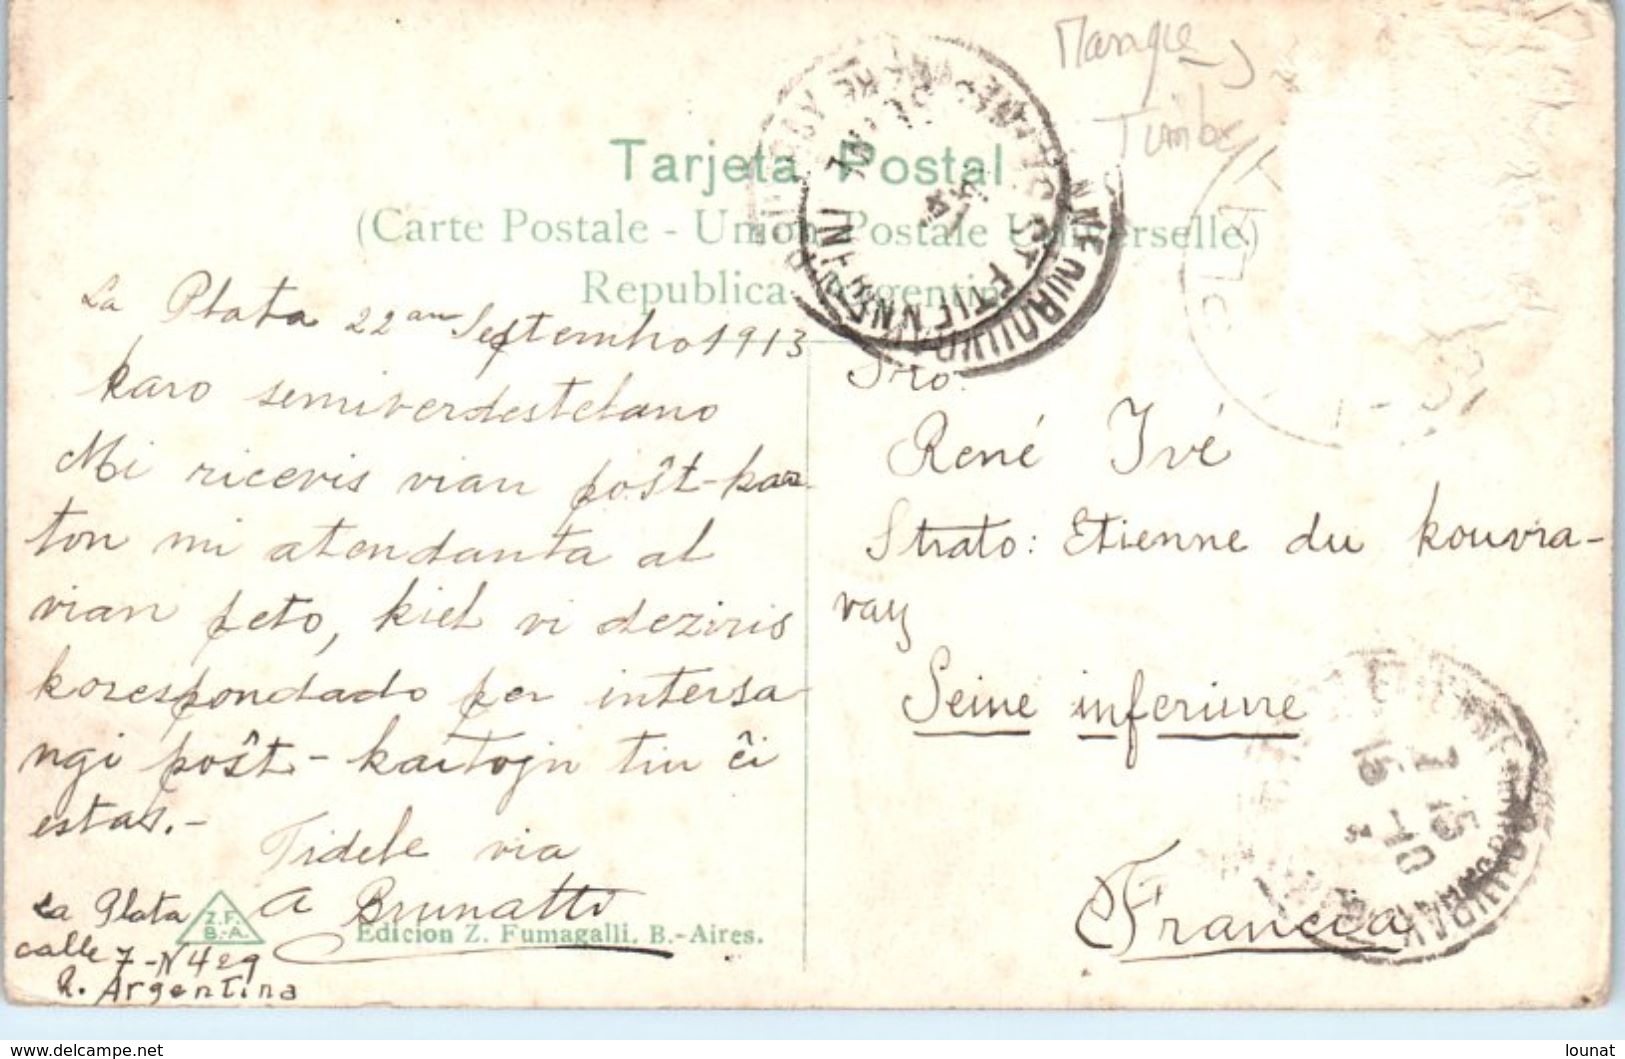 Manque
Timbre
Tarjeta Postal
(Carte Postale - Union Postale Universelle)
Republica Argentina
La Plata 22an Septembro 1913
karo semiverdestelano
Mi ricevis vian poŝt-kar-
ton mi atendanta al
vian peto, kiel vi deziris
korespondado per intersa-
ngi poŝt-kartojn tiu ĉi
estas.-
Fidele via
A Brunatti
La Plata
calle 7-N 429
R. Argentina
Z.F.
B.-A.
Edicion Z. Fumagalli. B.-Aires.
Sro.
René Ivé
Strato: Etienne du kouvra-
vay
Seine inferiure
Francia
ST ETIENNE DU ROUVRAY
LA PLATA
www.delcampe.net
lounat